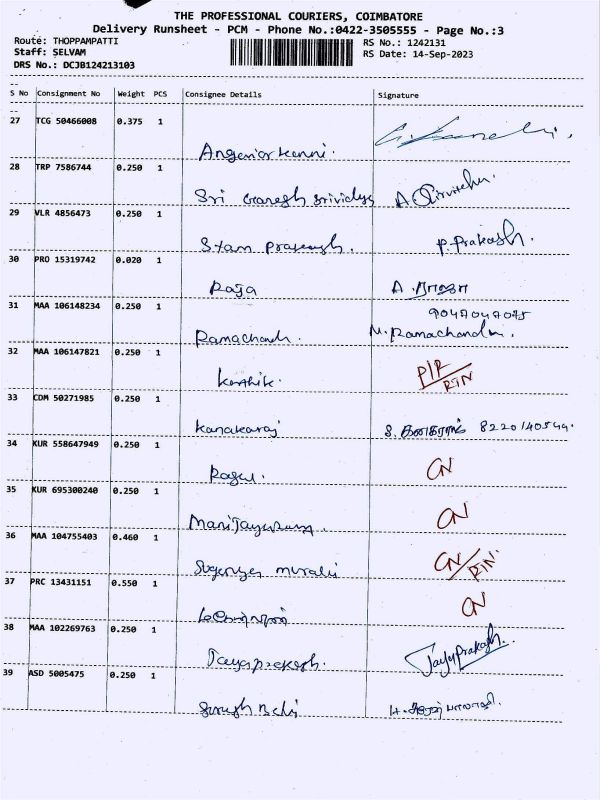 THE PROFESSIONAL COURIERS, COIMBATORE
Delivery Runsheet - PCM - Phone No.:0422-3505555 - Page No.:3
Route: THOPPAMPATTI RS No.: 1242131
Staff: SELVAM RS Date: 14-Sep-2023
DRS No.: DCJB124213103
S No Consignment No Weight PCS Consignee Details Signature
27 TCG 50466008 0.375 1
28 TRP 7586744 0.250 1
Sri Ganesh Srividya
29 VLR 4856473 0.250 1
Stan Prakash. P. Prakash.
30 PRO 15319742 0.020 1
Raja A. ராஜா
9047047075
31 MAA 106148234 0.250 1
Ramachandr. M. Ramachandran.
32 MAA 106147821 0.250 1
Karthik. P/R
RTN
33 CDM 50271985 0.250 1
Kanakaraj S. கனகராஜ் 8220140544.
34 KUR 558647949 0.250 1
Ragu. CN
35 KUR 695300240 0.250 1
CN
36 MAA 104755403 0.460 1
Sugenya murali CN/RTN.
37 PRC 13431151 0.550 1
CN
38 MAA 102269763 0.250 1
Jayaprakash. JayaPrakash.
39 ASD 5005475 0.250 1